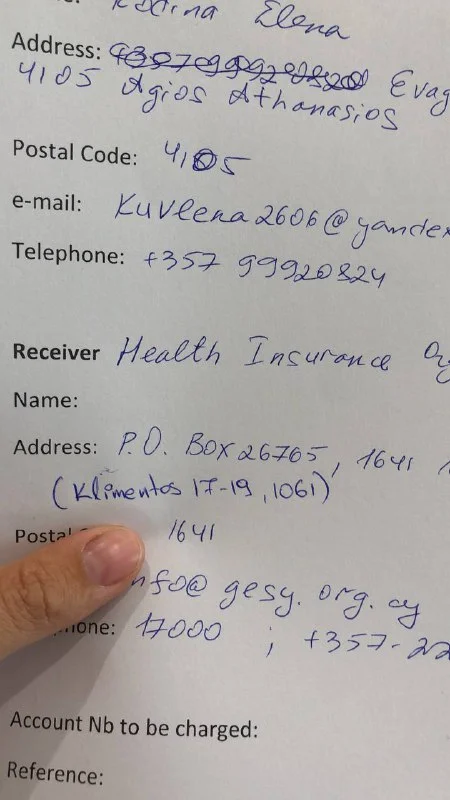 Elena
Address: Evag
4105 Agios Athanasios
Postal Code: 4105
e-mail: Kuvlena2606@yandex
Telephone: +357 99920824
Receiver Health Insurance Org
Name:
Address: P.O. Box 26765, 1641
(Klimentos 17-19, 1061)
Postal 1641
info@gesy.org.cy
phone: 17000 ; +357-22
Account Nb to be charged:
Reference: